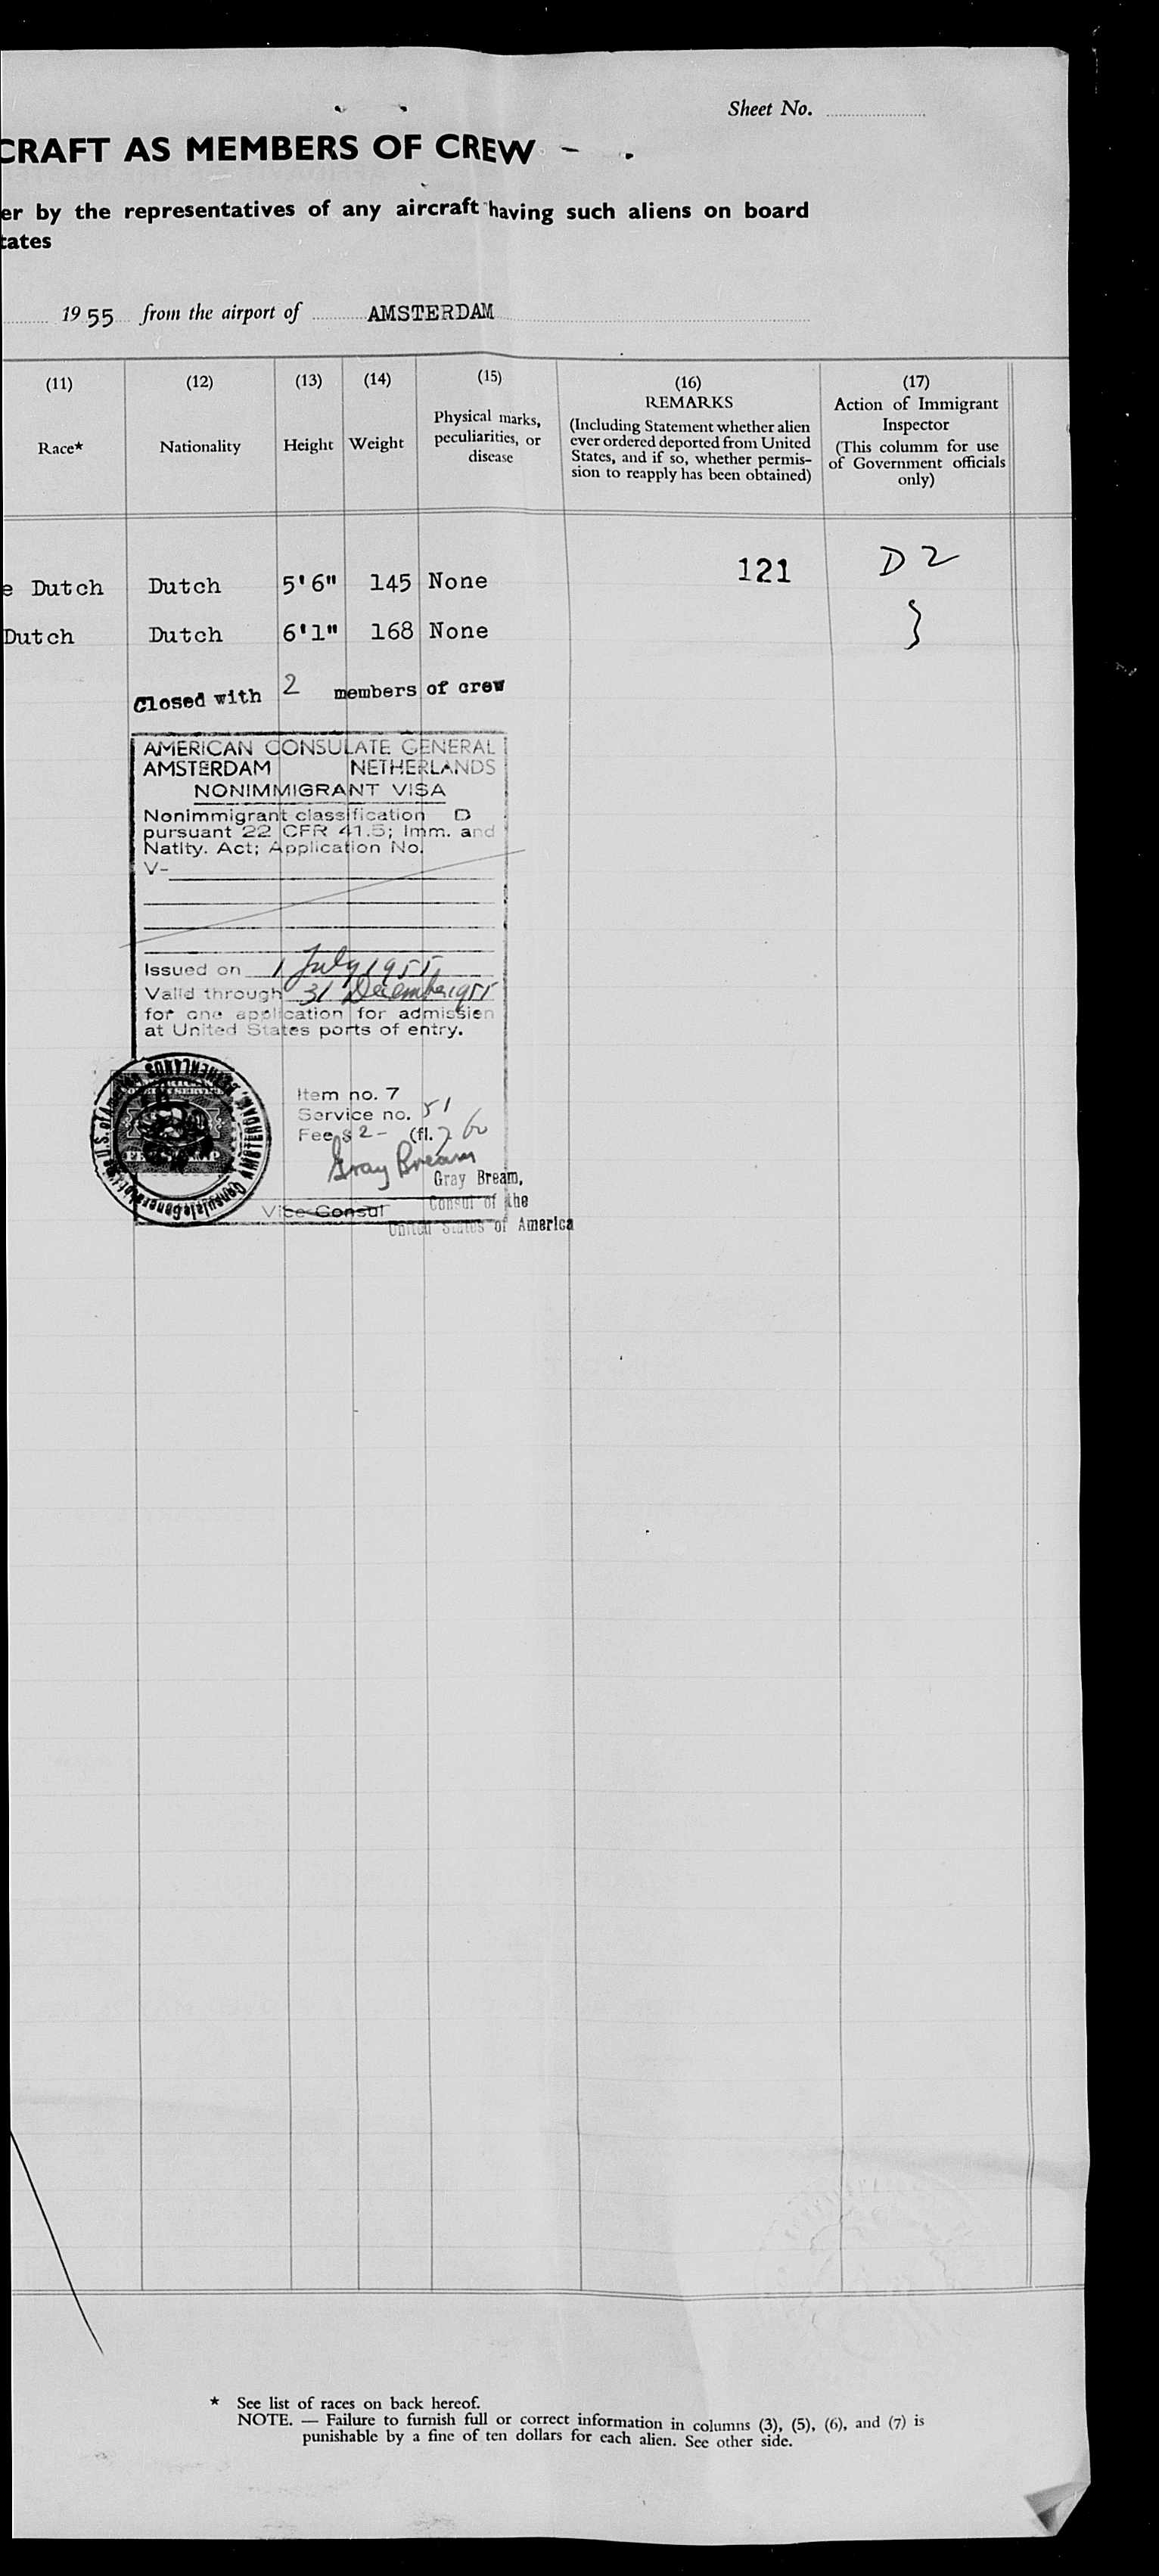 Sheet No.
CRAFT AS MEMBERS OF CREW
er by the representatives of any aircraft having such aliens on board
tates
1955 from the airport of AMSTERDAM
(11) (12) (13) (14) (15) (16) (17)
Race* Nationality Height Weight
Physical marks,
peculiarities, or
disease
REMARKS
(Including Statement whether alien
ever ordered deported from United
States, and if so, whether permis-
sion to reapply has been obtained)
Action of Immigrant
Inspector
(This column for use
of Government officials
only)
e Dutch Dutch 5'6" 145 None 121 D2
Dutch Dutch 6'1" 168 None }
Closed with 2 members of crew
AMERICAN CONSULATE GENERAL
AMSTERDAM NETHERLANDS
NONIMMIGRANT VISA
Nonimmigrant classification D
pursuant 22 CFR 41.5; Imm. and
Natity. Act; Application No.
V-
Issued on 1 July 1955
Valid through 31 December 1955
for one application for admission
at United States ports of entry.
Item no. 7
Service no. 51
Fee $ 2- (fl. 7.60
Gray Bream
Gray Bream,
Vice Consul
Consul of the
United States of America
FEE STAMP
AMSTERDAM, NETHERLANDS
* See list of races on back hereof.
NOTE. — Failure to furnish full or correct information in columns (3), (5), (6), and (7) is
punishable by a fine of ten dollars for each alien. See other side.